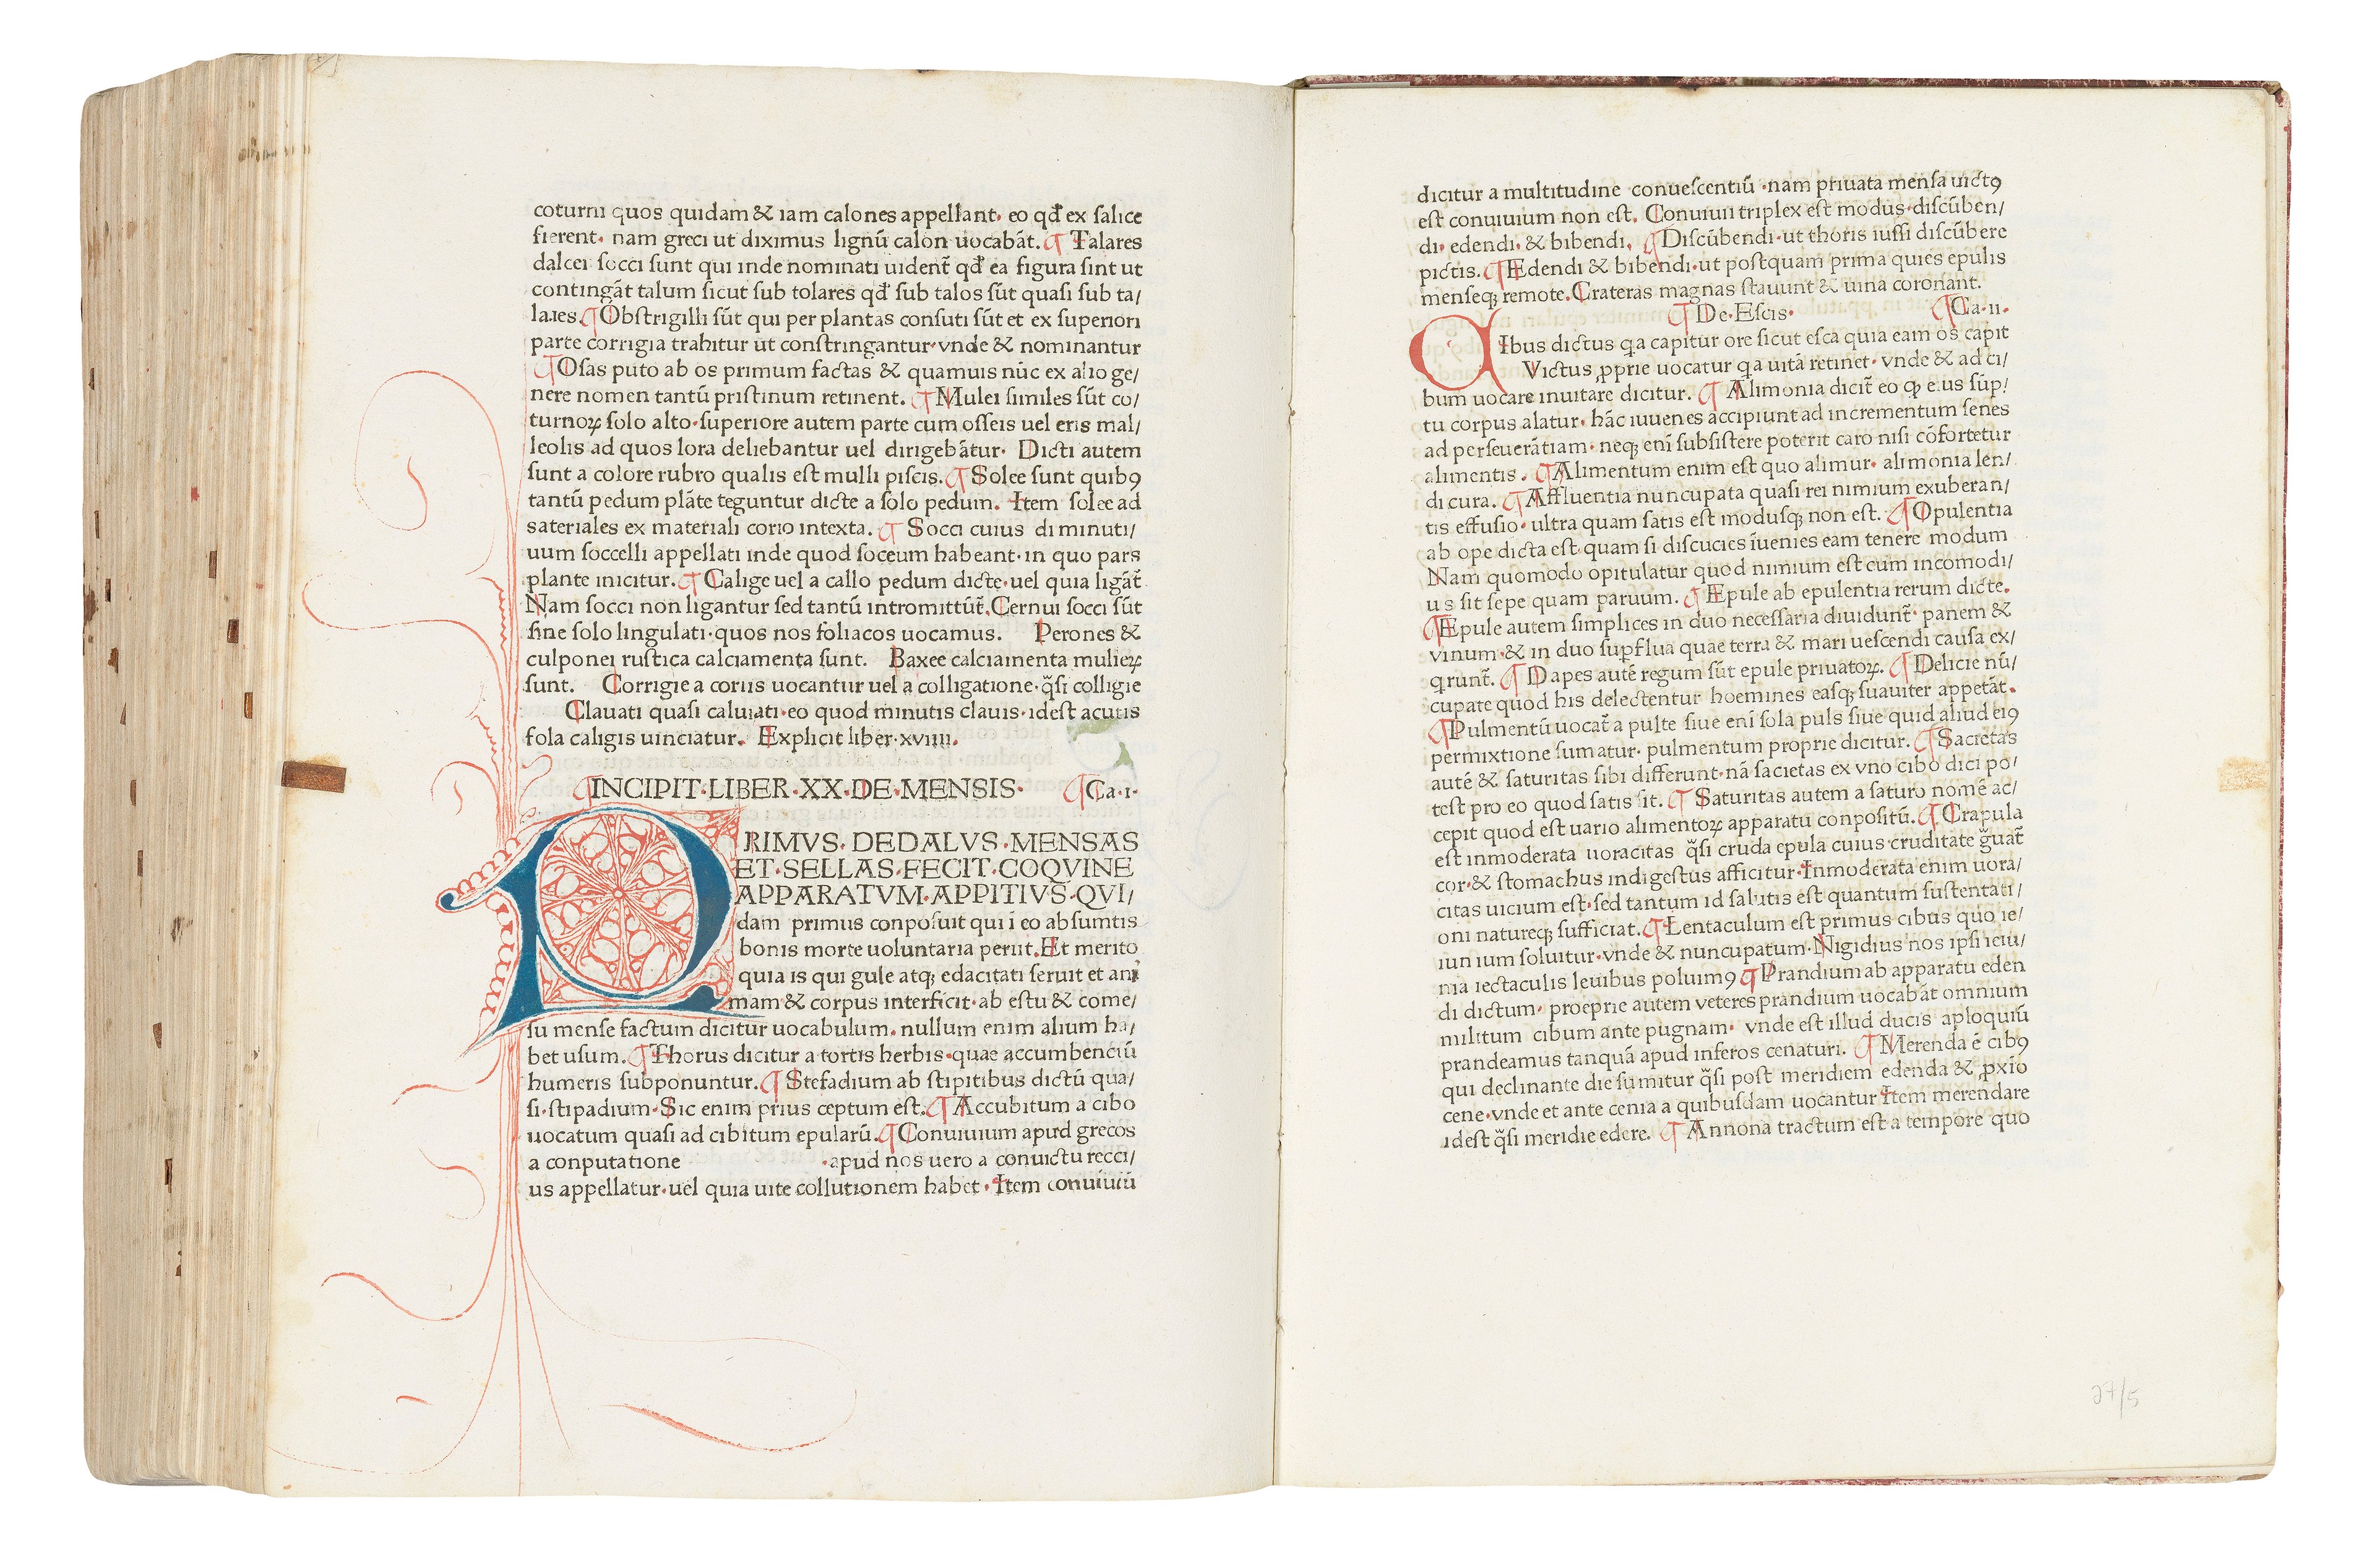 coturni quos quidam & iam calones appellant· eo qđ ex salice
fierent· nam greci ut diximus lignū calon uocabāt. ¶ Talares
dalcei socci sunt qui inde nominati uident̄ qđ ea figura sint ut
contingāt talum sicut sub tolares qđ sub talos sūt quasi sub ta/
lares. ¶ Obstrigilli sūt qui per plantas consuti sūt et ex superiori
parte corrigia trahitur ut constringantur· vnde & nominantur
¶ Osas puto ab os primum factas & quamuis nūc ex alio ge/
nere nomen tantū pristinum retinent. ¶ Mulei similes sūt co/
turnoꝝ solo alto· superiore autem parte cum osseis uel eris mal/
leolis ad quos lora deliebantur uel dirigebātur· Dicti autem
sunt a colore rubro qualis est mulli piscis. ¶ Solee sunt quibꝯ
tantū pedum plāte teguntur dicte a solo pedum. Item solee ad
sateriales ex materiali corio intexta. ¶ Socci cuius diminuti/
uum soccelli appellati inde quod soceum habeant· in quo pars
plante inicitur. ¶ Calige uel a callo pedum dicte· uel quia ligāt̄
Nam socci non ligantur sed tantū intromittūt̄. Cernui socci sūt
sine solo lingulati· quos nos foliacos uocamus. Perones &
culponei rustica calciamenta sunt. Baxee calciamenta mulieꝝ
sunt. Corrigie a coriis uocantur uel a colligatione· q̄si colligie
Clauati quasi caluiati· eo quod minutis clauis· idest acutis
sola caligis uinciatur. Explicit liber·xviiii.
¶ INCIPIT·LIBER·XX·DE·MENSIS· ¶ Ca·i·
PRIMVS·DEDALVS·MENSAS
ET·SELLAS·FECIT·COQVINE
APPARATVM·APPITIVS·QVI/
dam primus conposuit qui ī eo absumtis
bonis morte uoluntaria periit. Et merito
quia is qui gule atqꝫ edacitati seruit et ani
mam & corpus interficit· ab estu & come/
su mense factum dicitur uocabulum· nullum enim alium ha/
bet usum. ¶ Thorus dicitur a tortis herbis· quae accumbenciū
humeris subponuntur. ¶ Stefadium ab stipitibus dictū qua/
si· stipadium· Sic enim prius ceptum est. ¶ Accubitum a cibo
uocatum quasi ad cibitum epularū. ¶ Conuiuium apud grecos
a conputatione ·apud nos uero a conuictu recci/
us appellatur· uel quia uite collutionem habet· Item conuiuiū
dicitur a multitudine conuescentiū· nam priuata mensa uictꝯ
est conuiuium non est. Conuiuii triplex est modus· discūben/
di· edendi· & bibendi. ¶ Discūbendi· ut thoris iussi discūbere
pictis. ¶ Edendi & bibendi· ut postquam prima quies epulis
menseqꝫ remote. Crateras magnas stauunt & uina coronant.
¶ De·Escis· ¶ Ca·ii·
CIbus dictus q̇a capitur ore sicut esca quia eam os capit
Victus ꝓprie uocatur q̇a uitā retinet· vnde & ad ci/
bum uocare inuitare dicitur. ¶ Alimonia dicit̄ eo qꝫ eius sūp/
tu corpus alatur· hāc iuuenes accipiunt ad incrementum senes
ad perseuerātiam· neqꝫ enī subsistere poterit caro nisi cōfortetur
alimentis. ¶ Alimentum enim est quo alimur· alimonia len/
di cura. ¶ Affluentia nuncupata quasi rei nimium exuberan/
tis effusio· ultra quam satis est modusqꝫ non est. ¶ Opulentia
ab ope dicta est· quam si discucies īuenies eam tenere modum
Nam quomodo opitulatur quod nimium est cum incomodi/
us sit sepe quam paruum. ¶ Epule ab epulentia rerum dicte.
¶ Epule autem simplices in duo necessaria diuidunt̄· panem &
vinum· & in duo suꝑflua quae terra & mari uescendi causa ex/
q̇runt̄. ¶ Dapes autē regum sūt epule priuatoꝝ. ¶ Delicie nū/
cupate quod his delectentur hoemines easqꝫ suauiter appetāt.
¶ Pulmentū uocat̄ a pulte siue enī sola puls siue quid aliud eiꝯ
permixtione sumatur· pulmentum proprie dicitur. ¶ Sacietas
autē & saturitas sibi differunt· nā sacietas ex vno cibo dici po/
test pro eo quod satis sit. ¶ Saturitas autem a saturo nomē ac/
cepit quod est uario alimentoꝝ apparatu conpositū. ¶ Crapula
est inmoderata uoracitas q̄si cruda epula cuius cruditate ḡuat̄
cor· & stomachus indigestus afficitur· Inmoderata enim uora/
citas uicium est· sed tantum id salutis est quantum sustentati/
oni natureqꝫ sufficiat. ¶ Lentaculum est primus cibus quo ie/
iunium soluitur· vnde & nuncupatum· Nigidius nos ipsi ieiu/
nia iectaculis leuibus poluimꝯ ¶ Prandium ab apparatu eden
di dictum· proeprie autem veteres prandium uocabāt omnium
militum cibum ante pugnam· vnde est illud ducis aploquiū
prandeamus tanquā apud inferos cenaturi. ¶ Merenda ē cibꝯ
qui declinante die sumitur q̄si post meridiem edenda & ꝓxio
cene· vnde et ante cenia a quibusdam uocantur Item merendare
idest q̄si meridie edere. ¶ Annona tractum est a tempore quo
27/5